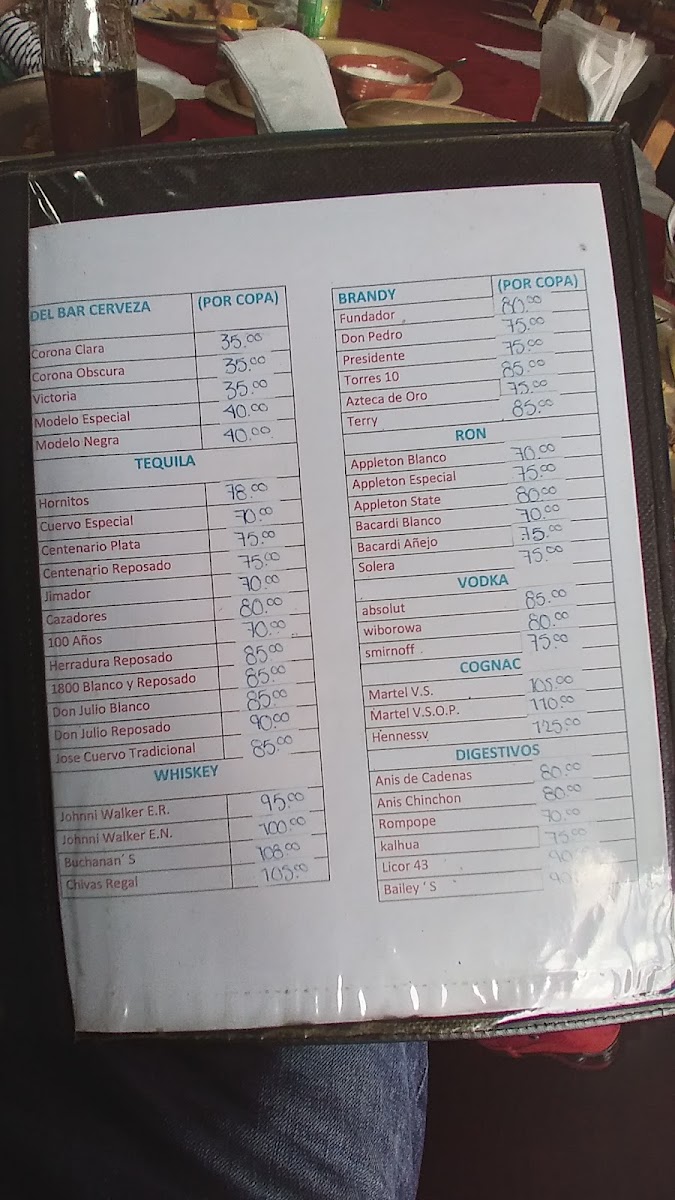 DEL BAR CERVEZA (POR COPA)
Corona Clara 35.00
Corona Obscura 35.00
Victoria 35.00
Modelo Especial 40.00
Modelo Negra 40.00
TEQUILA
Hornitos 78.00
Cuervo Especial 70.00
Centenario Plata 75.00
Centenario Reposado 75.00
Jimador 70.00
Cazadores 80.00
100 Años 70.00
Herradura Reposado 85.00
1800 Blanco y Reposado 85.00
Don Julio Blanco 85.00
Don Julio Reposado 90.00
Jose Cuervo Tradicional 85.00
WHISKEY
Johnni Walker E.R. 95.00
Johnni Walker E.N. 100.00
Buchanan´S 108.00
Chivas Regal 105.00
BRANDY (POR COPA)
Fundador 80.00
Don Pedro 75.00
Presidente 75.00
Torres 10 85.00
Azteca de Oro 75.00
Terry 85.00
RON
Appleton Blanco 70.00
Appleton Especial 75.00
Appleton State 80.00
Bacardi Blanco 70.00
Bacardi Añejo 75.00
Solera 75.00
VODKA
absolut 85.00
wiborowa 80.00
smirnoff 75.00
COGNAC
Martel V.S. 105.00
Martel V.S.O.P. 110.00
Hennessy 125.00
DIGESTIVOS
Anis de Cadenas 80.00
Anis Chinchon 80.00
Rompope 70.00
kalhua 75.00
Licor 43
Bailey´S